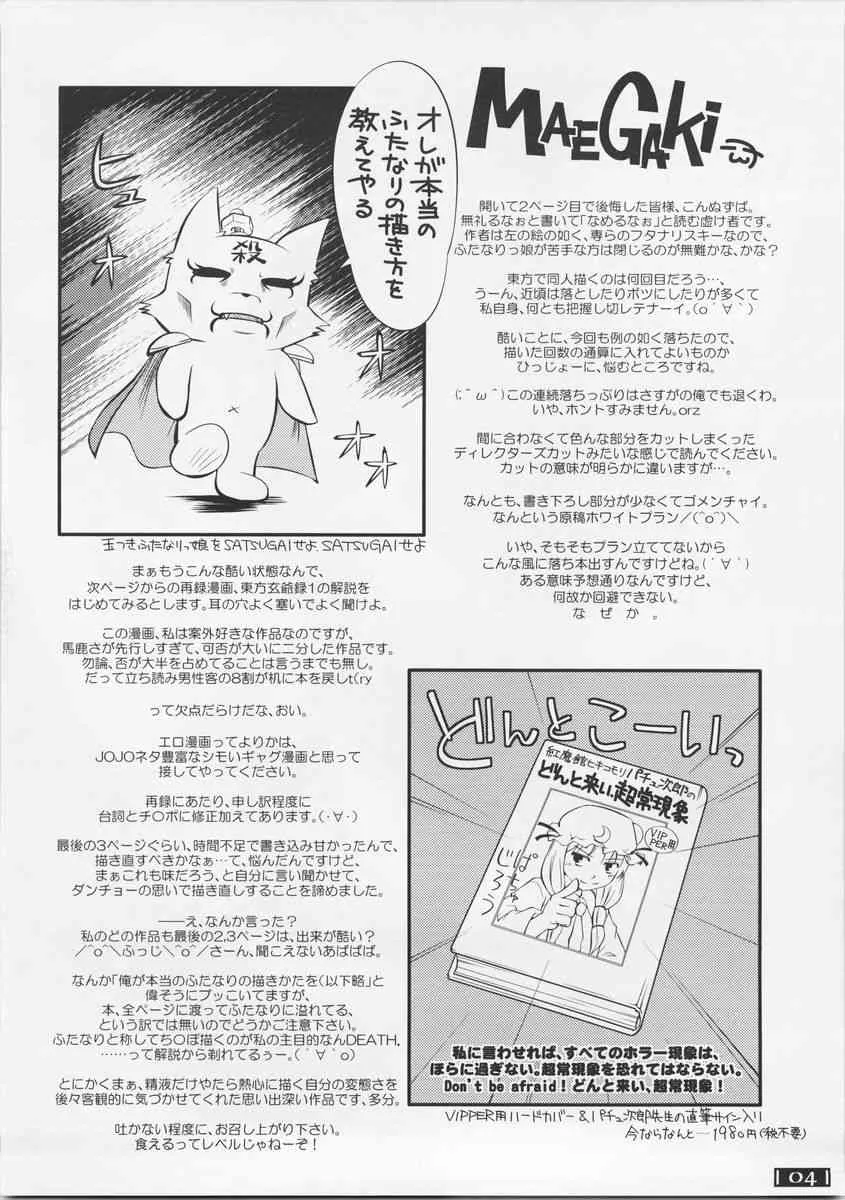 MAEGAKi
開いて2ページ目で後悔した皆様、こんぬずば。
無礼るなぉと書いて「なめるなぉ」と読む虚け者です。
作者は左の絵の如く、専らのフタナリスキーなので、
ふたなりっ娘が苦手な方は閉じるのが無難かな、かな?
東方で同人描くのは何回目だろう…、
うーん、近頃は落としたりボツにしたりが多くて
私自身、何とも把握し切レテナーイ。(o´∀`)
酷いことに、今回も例の如く落ちたので、
描いた回数の通算に入れてよいものか
ひっじょーに、悩むところですね。
(;^ω^)この連続落ちっぷりはさすがの俺でも退くわ。
いや、ホントすみません。orz
間に合わなくて色んな部分をカットしまくった
ディレクターズカットみたいな感じで読んでください。
カットの意味が明らかに違いますが…。
なんとも、書き下ろし部分が少なくてゴメンチャイ。
なんという原稿ホワイトプラン/(^o^)\
いや、そもそもプラン立ててないから
こんな風に落ち本出すんですけどね。(´∀`)
ある意味予想通りなんですけど、
何故か回避できない。
な ぜ か 。
オレが本当の
ふたなりの描き方を
教えてやる
ヒュ
殺
玉つきふたなりっ娘をSATSUGAIせよ、SATSUGAIせよ
まぁもうこんな酷い状態なんで、
次ページからの再録漫画、東方玄爺録1の解説を
はじめてみるとします。耳の穴よく塞いでよく聞けよ。
この漫画、私は案外好きな作品なのですが、
馬鹿さが先行しすぎて、可否が大いに二分した作品です。
勿論、否が大半を占めてることは言うまでも無し。
だって立ち読み男性客の8割が机に本を戻しt(ry
って欠点だらけだな、おい。
エロ漫画ってよりかは、
JOJOネタ豊富なシモいギャグ漫画と思って
接してやってください。
再録にあたり、申し訳程度に
台詞とチ○ポに修正加えてあります。(・∀・)
最後の3ページぐらい、時間不足で書き込み甘かったんで、
描き直すべきかなぁ…て、悩んだんですけど、
まぁこれも味だろう、と自分に言い聞かせて、
ダンチョーの思いで描き直しすることを諦めました。
――え、なんか言った?
私のどの作品も最後の2,3ページは、出来が酷い?
/^o^\ふっじ\^o^/さーん、聞こえないあばばば。
なんか「俺が本当のふたなりの描きかたを(以下略」と
偉そうにブッこいてますが、
本、全ページに渡ってふたなりに溢れてる、
という訳では無いのでどうかご注意下さい。
ふたなりと称してち○ぽ描くのが私の主目的なんDEATH,
……って解説から剃れてるぅー。(´∀`o)
とにかくまぁ、精液だけやたら熱心に描く自分の変態さを
後々客観的に気づかせてくれた思い出深い作品です、多分。
吐かない程度に、お召し上がり下さい。
食えるってレベルじゃねーぞ!
どんとこーいっ
紅魔館ヒキコモリパチュ次郎の
どんと来い、超常現象
VIPPER用
ぱちゅ
じろう
私に言わせれば、すべてのホラー現象は、
ほらに過ぎない。超常現象を恐れてはならない。
Don't be afraid! どんと来い、超常現象!
VIPPER用ハードカバー&パチュ次郎先生の直筆サイン入り
今ならなんと―1980円(税不要)
04